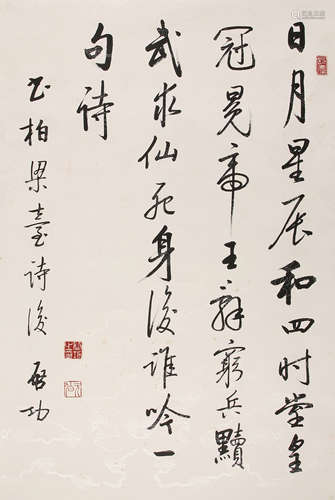 日月星辰和四时堂皇
冠冕帝王辞穷兵黩
武求仙死身后谁吟一
句诗
书柏梁臺詩後
启功